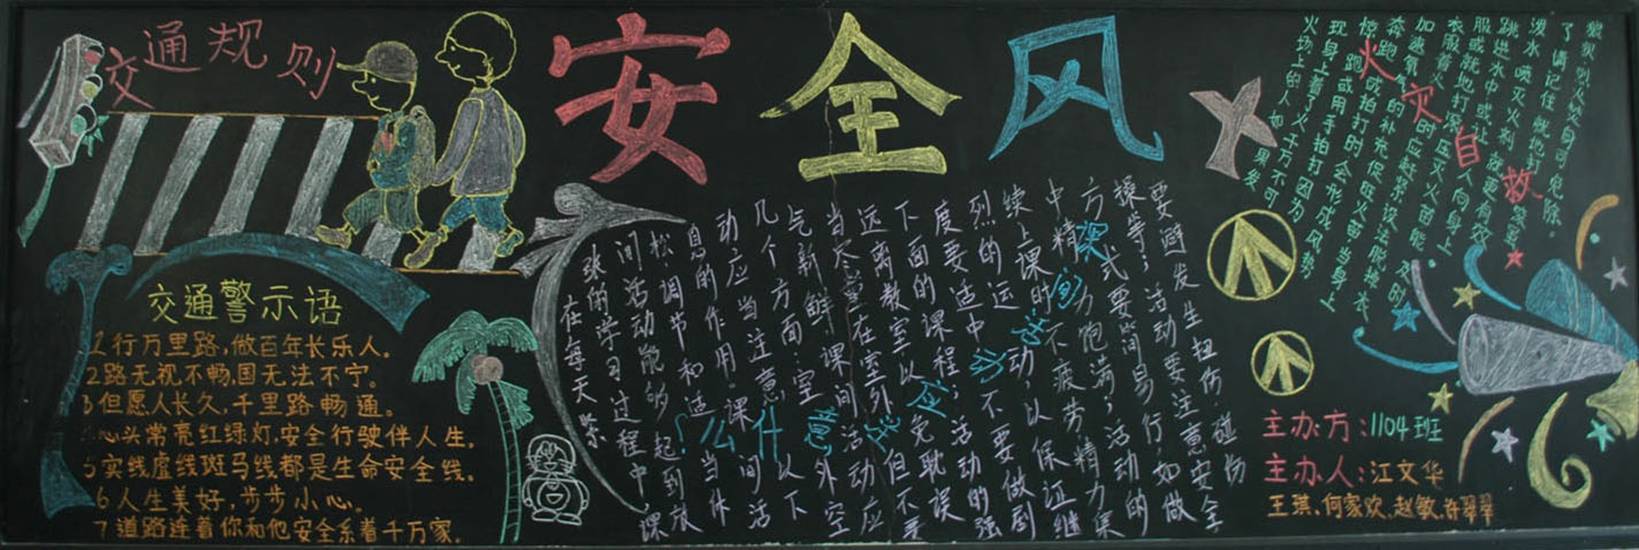 交通规则
安全风
交通警示语
1行万里路,做百年长乐人。
2路无视不畅,国无法不宁。
3但愿人长久,千里路畅通。
心头常亮红绿灯,安全行驶伴人生。
5实线虚线斑马线都是生命安全线。
6人生美好,步步小心。
7道路连着你和他安全系着千万家。
课间活动应注意什么?
在每天紧
张的学习过程中课
间活动能够起到放
松调节和适当休
息的作用。课间活
动应当注意以下
几个方面:室外空
气新鲜,课间活动应
当尽量在室外,但不要
远离教室,以免耽误
下面的课程;活动的强
度要适中,不要做剧
烈的运动,以保证继
续上课时不疲劳精力集
中精力饱满;活动的
方式要简易行,如做
操等;活动要注意安全
要避发生扭伤碰伤
火灾自救
火场上的人如果发
现身上着了火千万不可
惊跑或用手拍打因为
奔跑或拍打时会形成风势
加速氧气的补充促旺火苗当身上
衣服着火时应赶紧设法脱掉衣
服或就地打滚压灭火苗能及时
跳进水中或让人向身上
泼水喷灭火剂就更有效
了请记住就地打
主办方:1104班
主办人:江文华
王琪,何家欢,赵敏,许翠翠